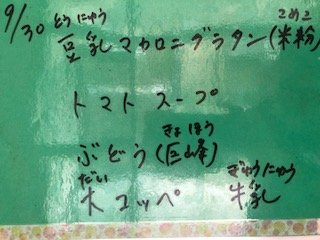 9/30
とうにゅう こめこ
豆乳マカロニグラタン(米粉)
トマトスープ
きょほう
ぶどう(巨峰)
だい ぎゅうにゅう
大コッペ 牛乳